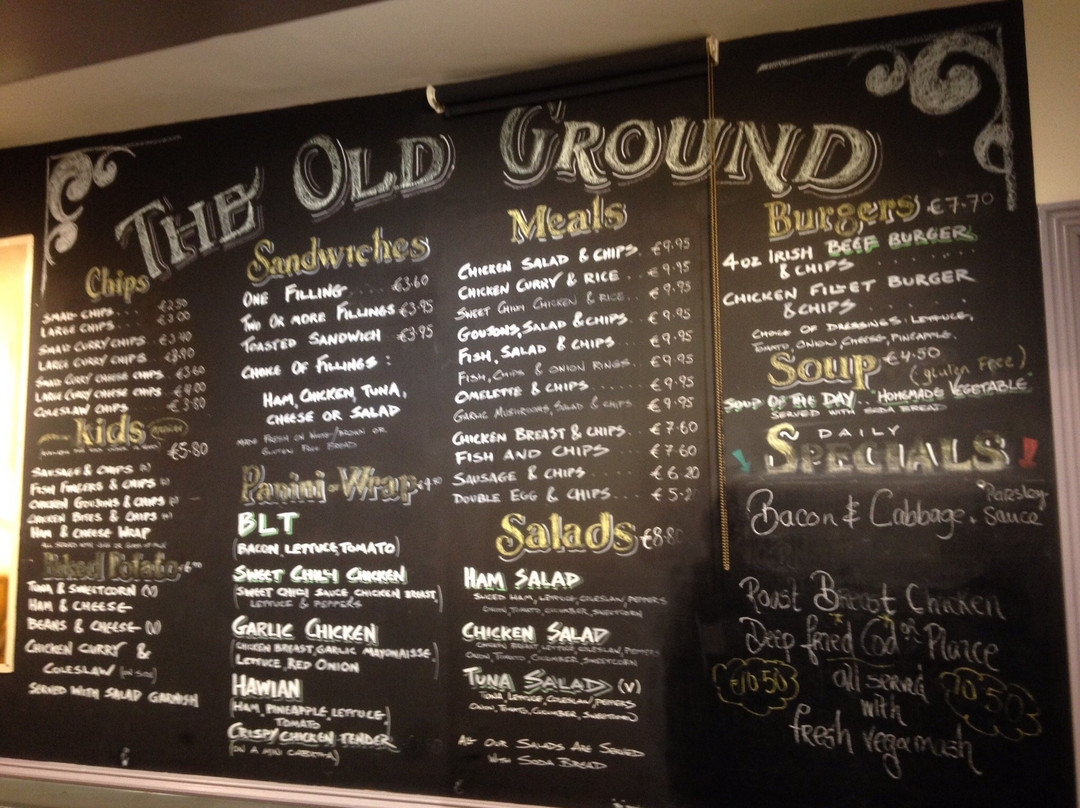 THE OLD GROUND
Chips
SMALL CHIPS . . . €2.50
LARGE CHIPS . . . €3.00
SMALL CURRY CHIPS . €3.40
LARGE CURRY CHIPS . €3.90
SMALL CURRY CHEESE CHIPS . €3.60
LARGE CURRY CHEESE CHIPS . €4.00
COLESLAW CHIPS €3.80
kids
€5.80
SAUSAGE & CHIPS
FISH FINGERS & CHIPS
CHICKEN GOUJONS & CHIPS
CHICKEN BITES & CHIPS
HAM & CHEESE WRAP
Baked Potato
TUNA & SWEETCORN (V)
HAM & CHEESE
BEANS & CHEESE (V)
CHICKEN CURRY &
COLESLAW
SERVED WITH SALAD GARNISH
Sandwiches
ONE FILLING . . . . €3.60
TWO OR MORE FILLINGS €3.95
TOASTED SANDWICH €3.95
CHOICE OF FILLINGS :
HAM, CHICKEN, TUNA,
CHEESE OR SALAD
MADE FRESH ON WHITE/BROWN OR
GLUTEN FREE BREAD
Panini-Wrap
BLT
(BACON, LETTUCE, TOMATO)
SWEET CHILLI CHICKEN
(SWEET CHILLI SAUCE CHICKEN BREAST,
LETTUCE & PEPPERS
GARLIC CHICKEN
(CHICKEN BREAST, GARLIC MAYONAISSE,
LETTUCE, RED ONION
HAWIAN
(HAM, PINEAPPLE, LETTUCE,
TOMATO)
CRISPY CHICKEN TENDER
(ON A MINI CIABATTA)
Meals
CHICKEN SALAD & CHIPS . €9.95
CHICKEN CURRY & RICE . . €9.95
SWEET CHILLI CHICKEN & RICE . . €9.95
GOUJONS, SALAD & CHIPS . . €9.95
FISH, SALAD & CHIPS . . . €9.95
FISH, CHIPS & ONION RINGS . €9.95
OMELETTE & CHIPS . . . . €9.95
GARLIC MUSHROOMS, SALAD & CHIPS . . €9.95
CHICKEN BREAST & CHIPS . . €7.60
FISH AND CHIPS . . . €7.60
SAUSAGE & CHIPS . . . €6.20
DOUBLE EGG & CHIPS . . . €5.20
Salads €8.80
HAM SALAD
SLICED HAM, LETTUCE, COLESLAW, PEPPERS
ONION, TOMATO, CUCUMBER, SWEETCORN
CHICKEN SALAD
CHICKEN BREAST, LETTUCE, COLESLAW, PEPPERS
ONION, TOMATO, CUCUMBER, SWEETCORN
TUNA SALAD (V)
TUNA, LETTUCE, COLESLAW, PEPPERS
ONION, TOMATO, CUCUMBER, SWEETCORN
ALL OUR SALADS ARE SERVED
WITH SODA BREAD
Burgers €7.70
4OZ IRISH BEEF BURGER
& CHIPS . . . . . .
CHICKEN FILLET BURGER
& CHIPS . . . . . .
CHOICE OF DRESSINGS: LETTUCE,
TOMATO, ONION, CHEESE, PINEAPPLE.
Soup €4.50
(gluten Free)
SOUP OF THE DAY . . HOMEMADE VEGETABLE
SERVED WITH SODA BREAD
DAILY
SPECIALS
Bacon & Cabbage. "Parsley
Sauce
Roast Breast Chicken
Deep fried Cod or Plaice
€10.50 all served 10.50
with
fresh veg & mash